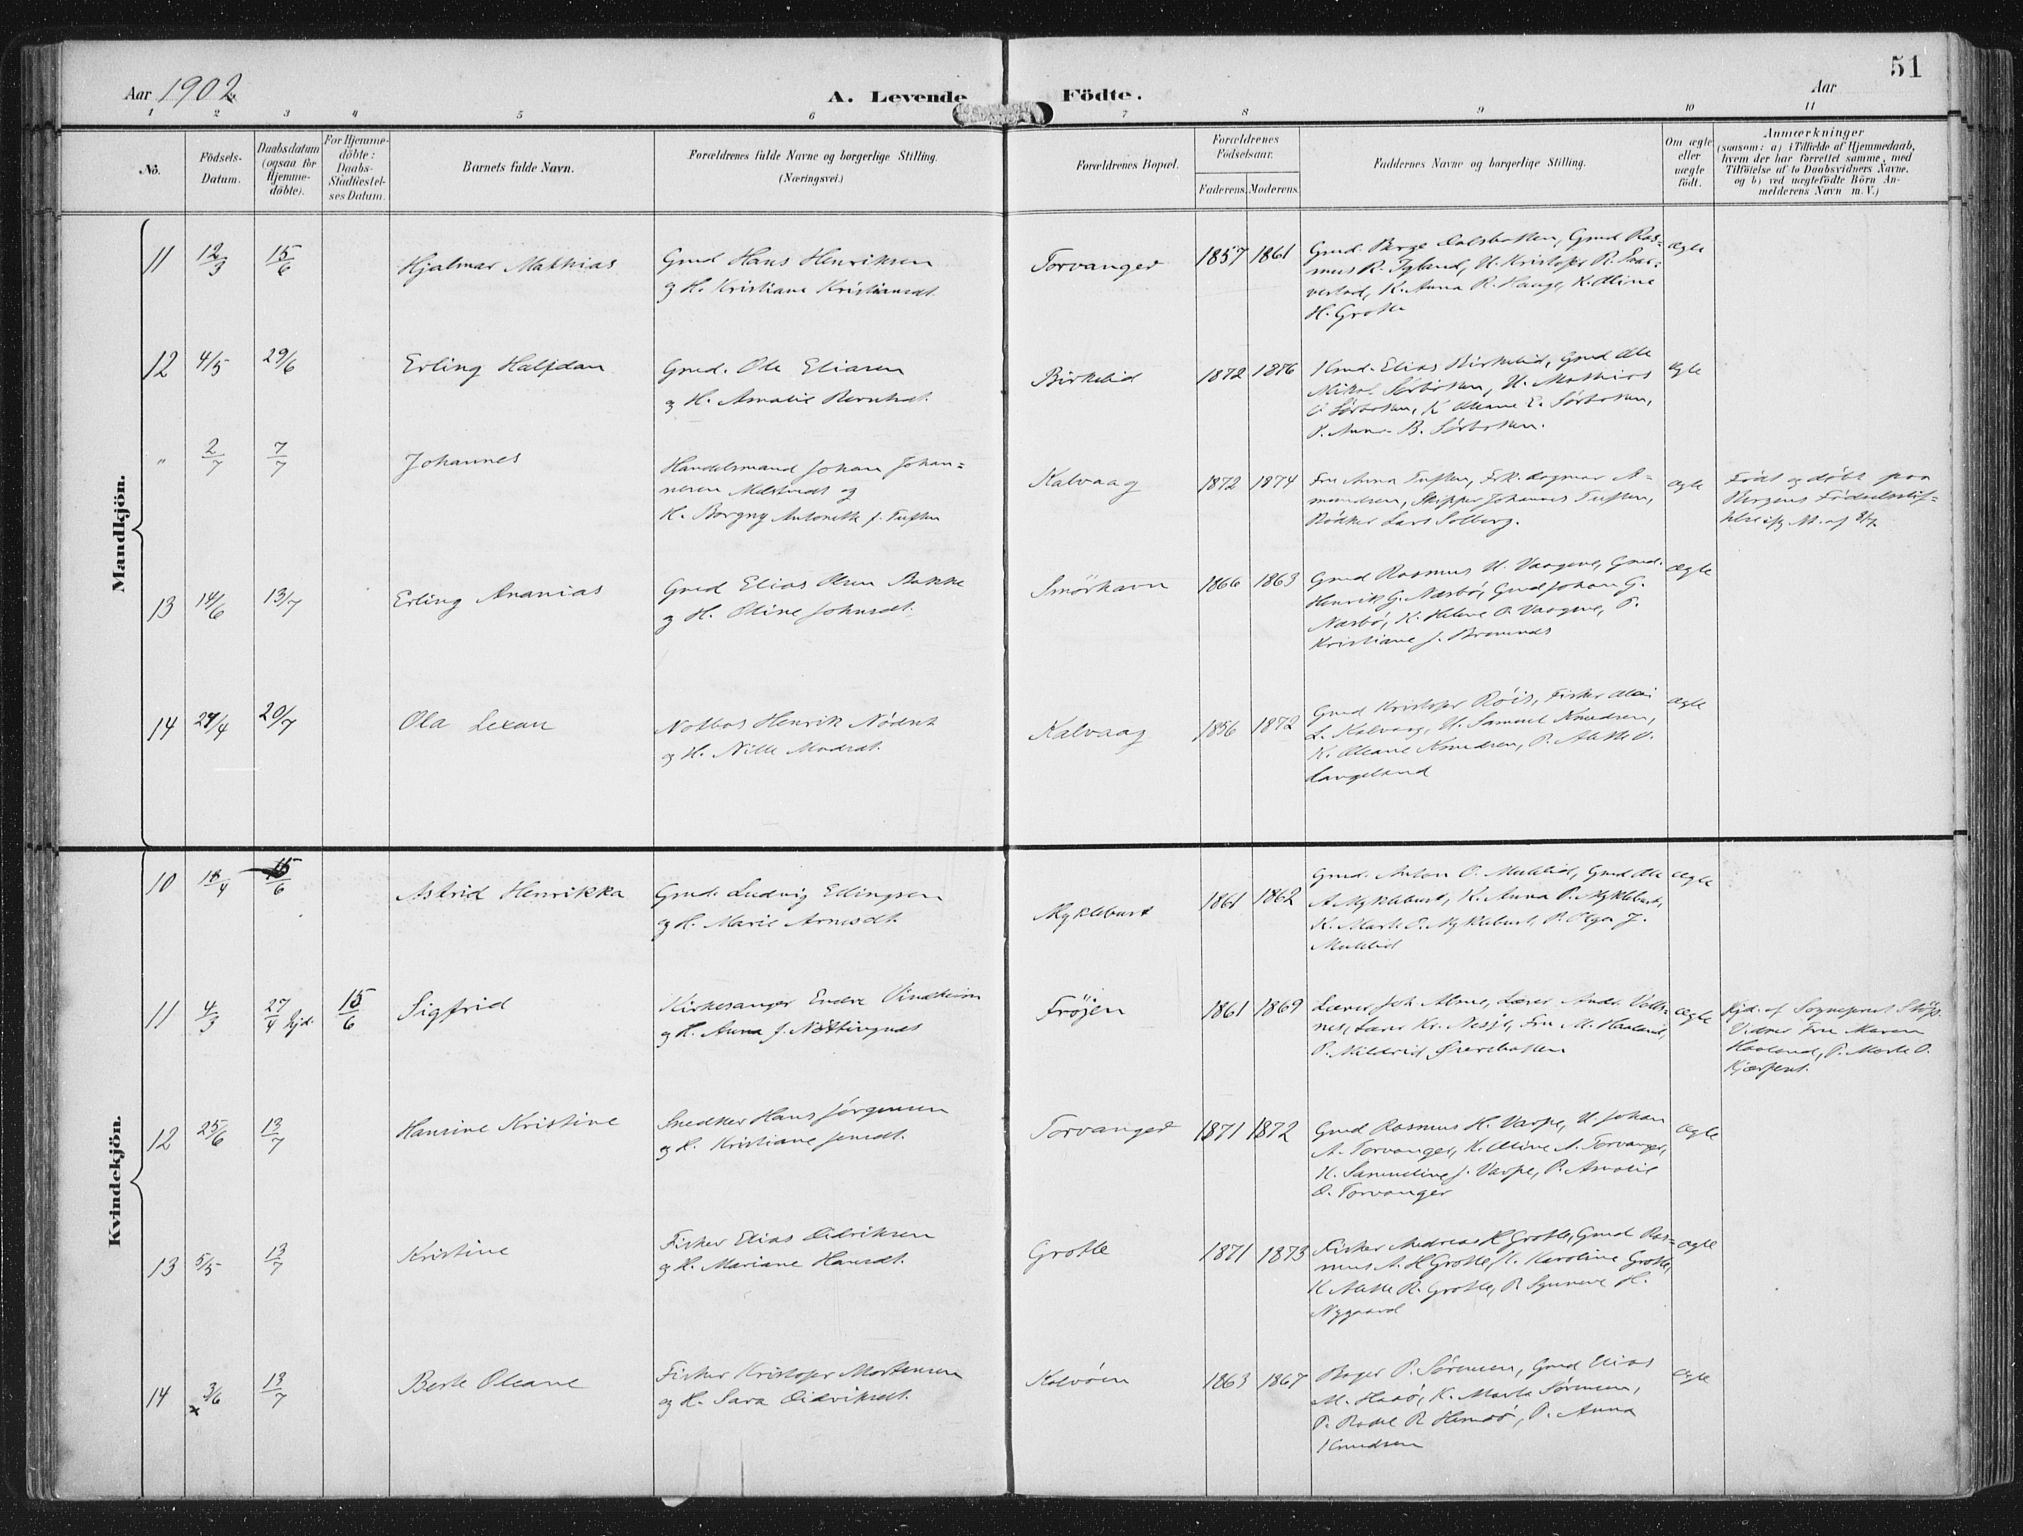 Aar 1902
A. Levende Födte.
Aar
51
1 2 3 4 5 6 7 8 9 10 11
No.
Födsels-
Datum.
Daabsdatum
(ogsaa for
Hjemme-
döbte).
For Hjemme-
döbte:
Daabs-
Stadfæstel-
ses Datum.
Barnets fulde Navn.
Forældrenes fulde Navne og borgerlige Stilling.
(Næringsvei.)
Forældrenes Bopæl.
Forældrenes
Födselsaar.
Faderens. Moderens.
Faddernes Navne og borgerlige Stilling.
Om ægte
eller
uægte
födt.
Anmærkninger
(saasom: a) i Tilfælde af Hjemmedaab,
hvem der har forrettet samme, med
Tilföielse af to Daabsvidners Navne,
og b) ved uægtefödte Börn An-
melderens Navn m. V.)
Mandkjön.
11 12/3 15/6 Hjalmar Mathias
Gmd Hans Henriksen
og H. Kristiane Kristiansdt.
Torvanger 1857 1861
Gmd. Børge Dalsbotten, Gmd Ras-
mus R. Igland, U. Kristofer R.
K. Anna R. Hauge, K. Oline
H. Grotle
ægte
12 4/5 29/6 Erling Halfdan
Gmd. Ole Eliasen
og H. Amalie Berntsdt.
Birkelid 1872 1876
Gmd. Elias Birkelid, Gmd Ole
Mikal Sørbotten, U. Mathias
O Sørbotten, K Oleane E. Sørbotten,
P. Anne B. Sørbotten.
ægte
" 2/7 7/7 Johannes
Handelsmand Johan Johan-
nesen og
H. Borgny Antonette f. Tuften
Kalvaag 1872 1874
Fru Anna Tuften, Frk. Dagmar A-
mundsen, Skipper Johannes Tuften,
Bødker Lars Solberg.
ægte
Født og døbt paa
Bergens Fødselsstif-
telse ifg M. af 8/7.
13 14/6 13/7 Erling Ananias
Gmd Elias Olsen Bakke
og H. Oline Johnsdt.
Smörhavn 1866 1863
Gmd Rasmus U. Vaagene, Gmd.
Henrik G. Næsbø, Gmd Johan G.
Næsbø, K. Helene O. Vaagene, P.
Kristiane J. Bremnes
ægte
14 24/4 20/7 Ola Lexau
Notbas Henrik
og H. Nille Madsdt.
Kalvaag 1856 1872
Gmd Kristofer Røis, Fisker
L. Kalvaag, U. Samuel Knudsen,
K. Oleane Knudsen, P.
Langeland
ægte
Kvindekjön.
10 15/6 Astrid Henrikka
Gmd. Ludvig Ellingsen
og H. Marie Arnesdt.
Myklebust 1861 1862
Gmd. Anton O. Muklid, Gmd Ole
A Myklebust, K. Anna P. Myklebust,
K. Marte O. Myklebust, P. Olga J.
Muklid
ægte
11 4/3 27/4 hjd. 15/6 Sigfrid
Kirkesanger Endre Vindheim
og H. Anna f. Nøttingnes
Fröjen 1861 1869
Lærer Joh. Alme, Lærer Andr.
Lærer Kr. Nesje, Fru M. Haaland,
P. Mildrid
ægte
Hjd. af Sogneprest
Vidner Fru Maren
Haaland, P. Marte O.
12 25/6 13/7 Hansine Kristine
Snedker Hans Jörgensen
og H. Kristiane Jensdt.
Torvanger 1871 1872
Gmd Rasmus H. Varpe, U Johan
A. Torvanger, K. Oline A. Torvanger,
K. Samueline J. Varpe, P. Amalie
O. Torvanger
ægte
13 5/5 13/7 Kristine
Fisker Elias Didriksen
og H. Mariane Hansdt.
Grotle 1871 1873
Fisker Andreas H Grotle, Gmd Ras-
mus A. H Grotle, K. Karoline Grotle,
K Malle R. Grotle, P. Synneve H.
Nygaard
ægte
14 3/6 13/7 Berte Oleane
Fisker Kristofer Mortensen
og H. Sara Didriksdt.
Kalvöen 1863 1867
Bager P. Sørensen, Gmd Elias
M. Hasø, K. Marta Sørensen,
P. Rakel R Hemsø, P. Anna
Knudsen
ægte